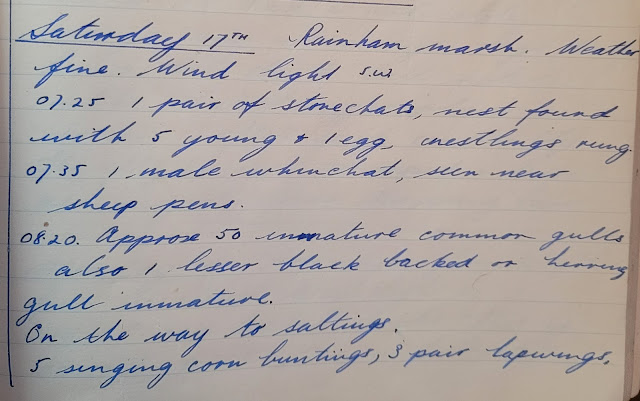 Saturday 17TH Rainham marsh. Weather
fine. Wind light S.W
07.25 1 pair of stonechats, nest found
with 5 young & 1 egg, nestlings rung.
07.35 1 male whinchat, seen near
sheep pens.
08.20. Approx 50 immature common gulls
also 1 lesser black backed or herring
gull immature.
On the way to saltings.
5 singing corn buntings, 3 pair lapwings.